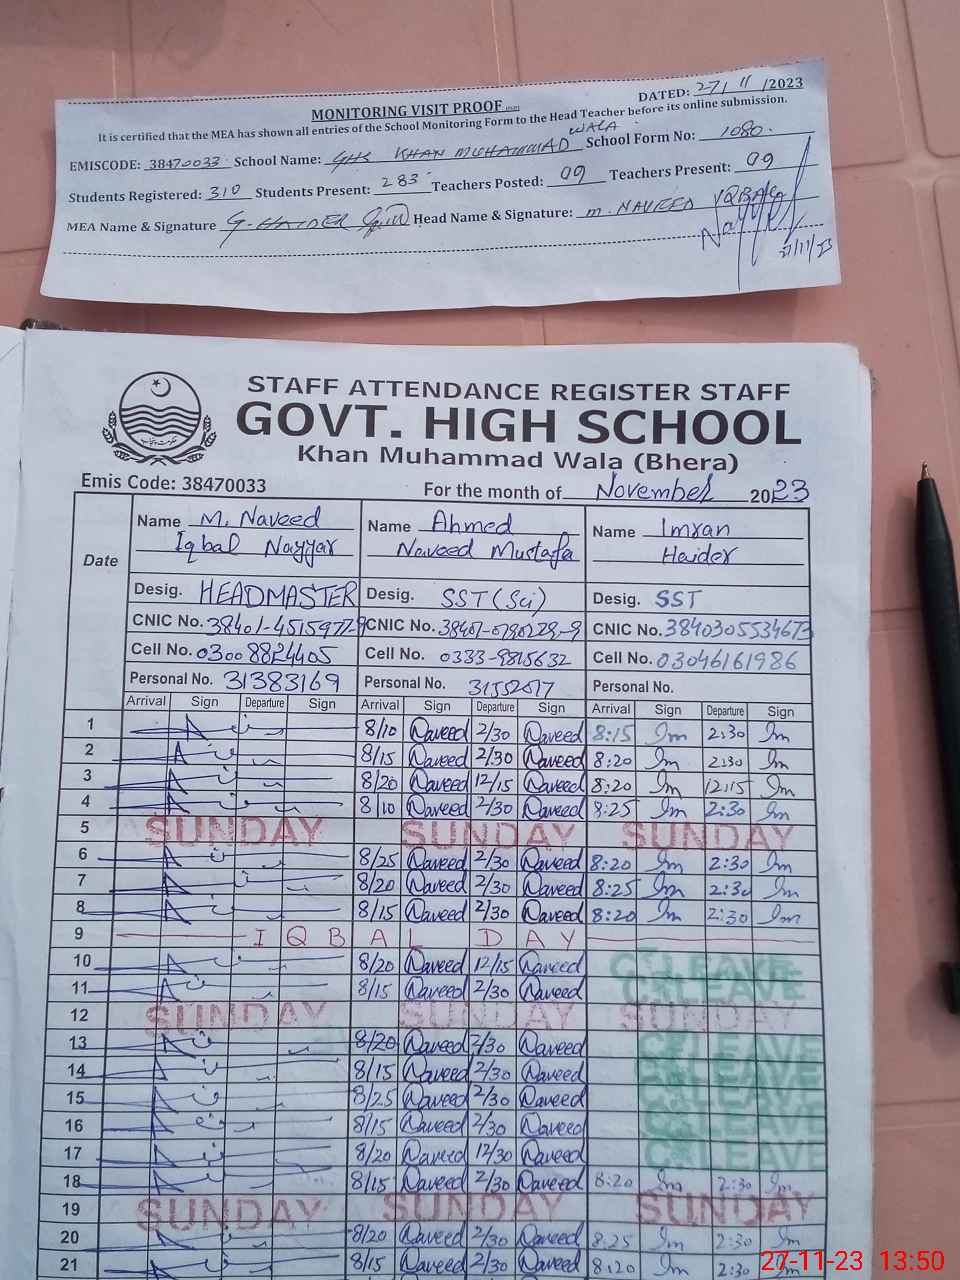 DATED: 27/11/2023
MONITORING VISIT PROOF
It is certified that the MEA has shown all entries of the School Monitoring Form to the Head Teacher before its online submission.
EMISCODE: 38470033 School Name: GHS KHAN MUHAMMAD WALA School Form No: 1080.
Students Registered: 310 Students Present: 283 Teachers Posted: 09 Teachers Present: 09
MEA Name & Signature G. HAIDER Head Name & Signature: M. NAVEED IQBAL
27/11/23
STAFF ATTENDANCE REGISTER STAFF
GOVT. HIGH SCHOOL
Khan Muhammad Wala (Bhera)
Emis Code: 38470033 For the month of November 2023
Date Name M. Naveed Iqbal Nayyar Name Ahmed Naveed Mustafa Name Imran Haider
Desig. HEADMASTER Desig. SST (Sci) Desig. SST
CNIC No. 38401-4515977-9 CNIC No. CNIC No. 3840305534673
Cell No. 03008824405 Cell No. 0333-9815632 Cell No. 03046161986
Personal No. 31383169 Personal No. Personal No.
Arrival Sign Departure Sign Arrival Sign Departure Sign Arrival Sign Departure Sign
1 8/10 Naveed 2/30 Naveed 8:15 Im 2:30 Im
2 8/15 Naveed 2/30 Naveed 8:20 Im 2:30 Im
3 8/20 Naveed 12/15 Naveed 8:20 Im 12:15 Im
4 8/10 Naveed 2/30 Naveed 8:25 Im 2:30 Im
5 SUNDAY SUNDAY SUNDAY
6 8/25 Naveed 2/30 Naveed 8:20 Im 2:30 Im
7 8/20 Naveed 2/30 Naveed 8:25 Im 2:30 Im
8 8/15 Naveed 2/30 Naveed 8:20 Im 2:30 Im
9 IQBAL DAY
10 8/20 Naveed 12/15 Naveed C. LEAVE
11 8/15 Naveed 2/30 Naveed C. LEAVE
12 SUNDAY SUNDAY SUNDAY
13 8/20 Naveed 2/30 Naveed C. LEAVE
14 8/15 Naveed 2/30 Naveed C. LEAVE
15 8/25 Naveed 2/30 Naveed C. LEAVE
16 8/15 Naveed 2/30 Naveed C. LEAVE
17 8/20 Naveed 12/30 Naveed C. LEAVE
18 8/15 Naveed 2/30 Naveed 8:20 Im 2:30 Im
19 SUNDAY SUNDAY SUNDAY
20 8/20 Naveed 2/30 Naveed 8:25 Im 2:30 Im
21 8/15 Naveed 2/30 Naveed 8:20 Im 2:30 Im
27-11-23 13:50